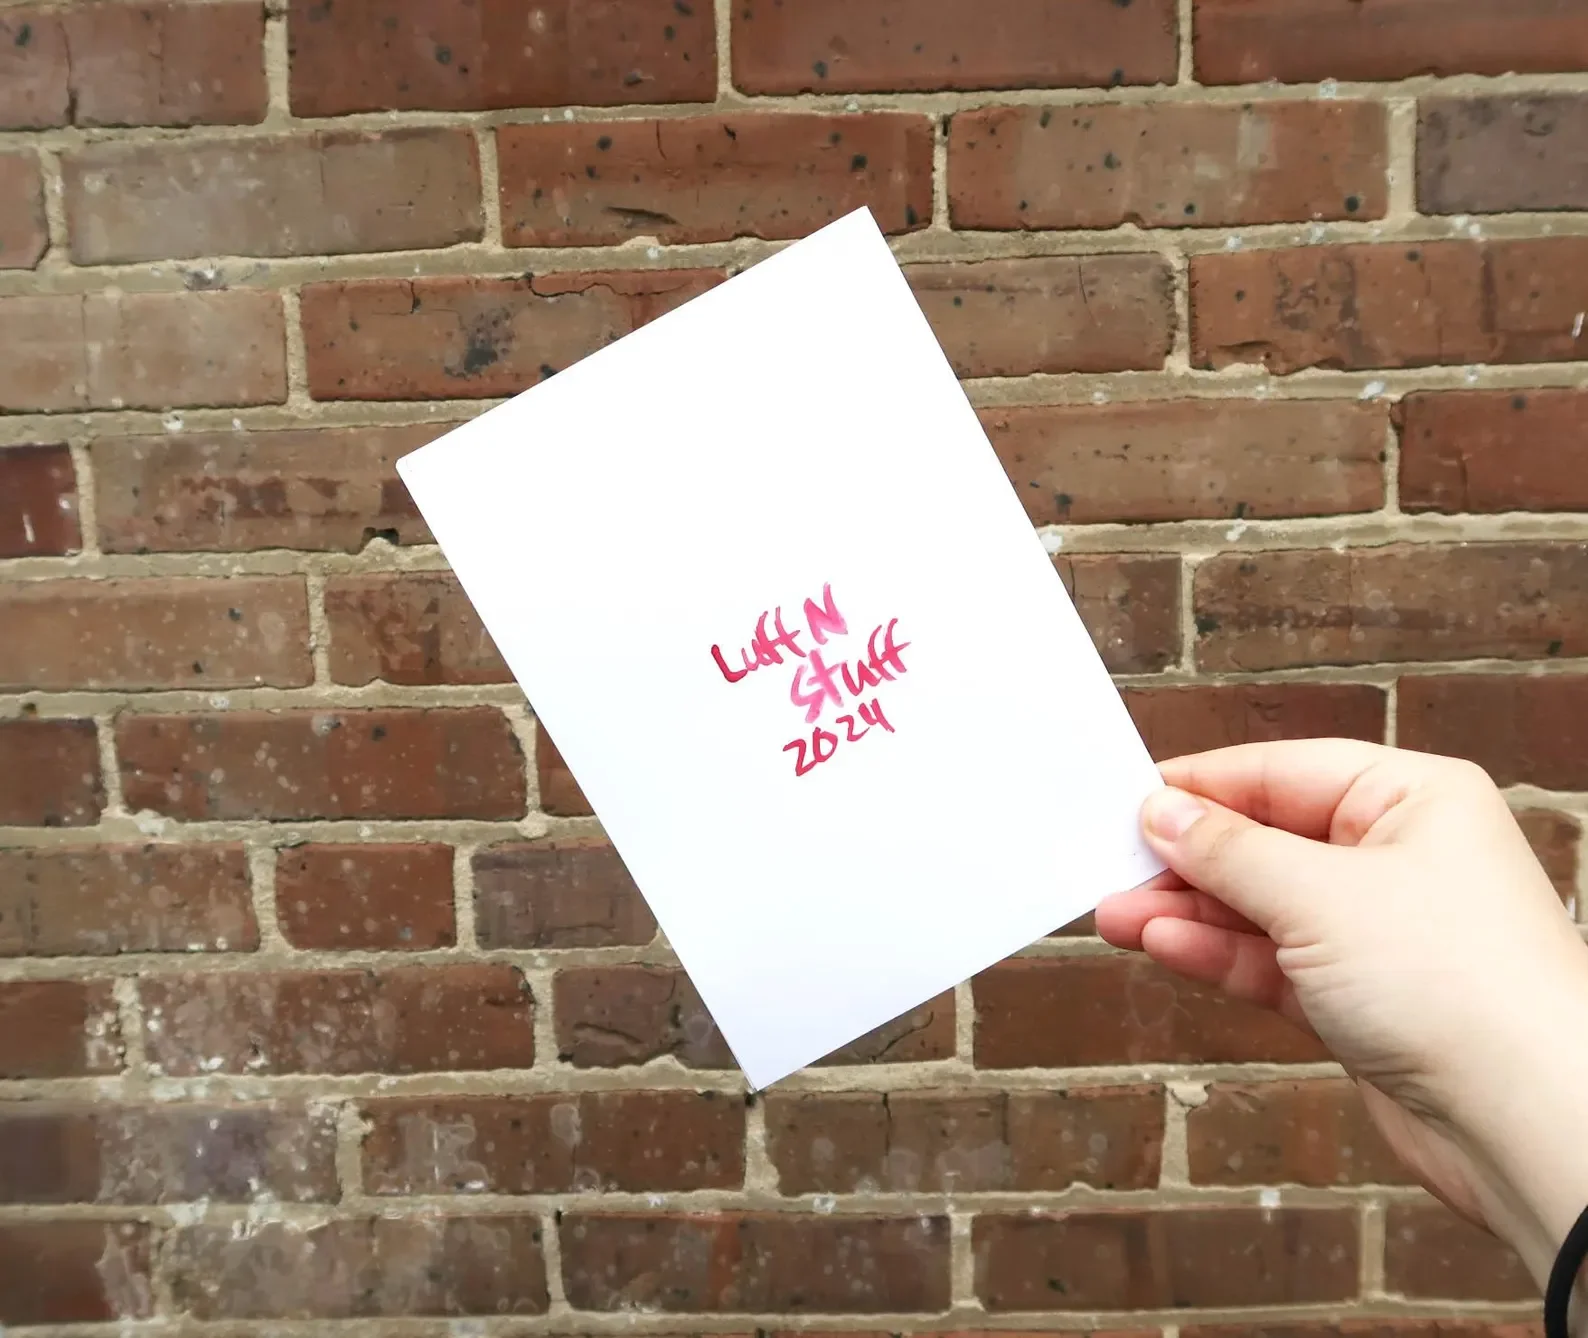 Luff N
Stuff
2024